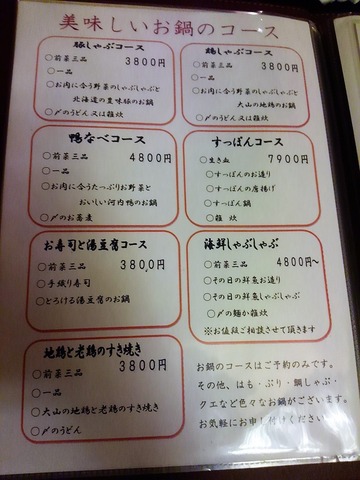 美味しいお鍋のコース
豚しゃぶコース
○前菜三品 3800円
○一品
○お肉に合う野菜のしゃぶしゃぶと
北海道の豊味豚のお鍋
○〆のうどん又は雑炊
鶏しゃぶコース
○前菜三品 3800円
○一品
○お肉に合う野菜のしゃぶしゃぶと
大山の地鶏のお鍋
○〆のうどん又は雑炊
鴨なべコース
○前菜三品 4800円
○一品
○お肉に合うたっぷりお野菜と
おいしい河内鴨のお鍋
○〆のお蕎麦
すっぽんコース
○生き血 7900円
○すっぽんのお造り
○すっぽんの唐揚げ
○すっぽん鍋
○雑炊
お寿司と湯豆腐コース
○前菜三品 3800円
○手織り寿司
○とろける湯豆腐のお鍋
海鮮しゃぶしゃぶ
○前菜三品 4800円~
○その日の鮮魚お造り
○その日の鮮魚しゃぶしゃぶ
○〆の麺か雑炊
※お値段ご相談させて頂きます
地鶏と老鶏のすき焼き
○前菜三品 3800円
○一品
○大山の地鶏と老鶏のすき焼き
○〆のうどん
お鍋のコースはご予約のみです。
その他、はも・ぶり・鯛しゃぶ・
クエなど色々なお鍋がございます。
お気軽にお申し付けください